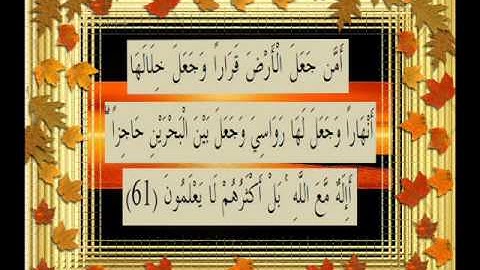 أَمَّن جَعَلَ الْأَرْضَ قَرَاراً وَجَعَلَ خِلَالَهَا
أَنْهَاراً وَجَعَلَ لَهَا رَوَاسِيَ وَجَعَلَ بَيْنَ الْبَحْرَيْنِ حَاجِزاً ۗ
أَإِلَهٌ مَّعَ اللَّهِ ۚ بَلْ أَكْثَرُهُمْ لَا يَعْلَمُونَ (61)